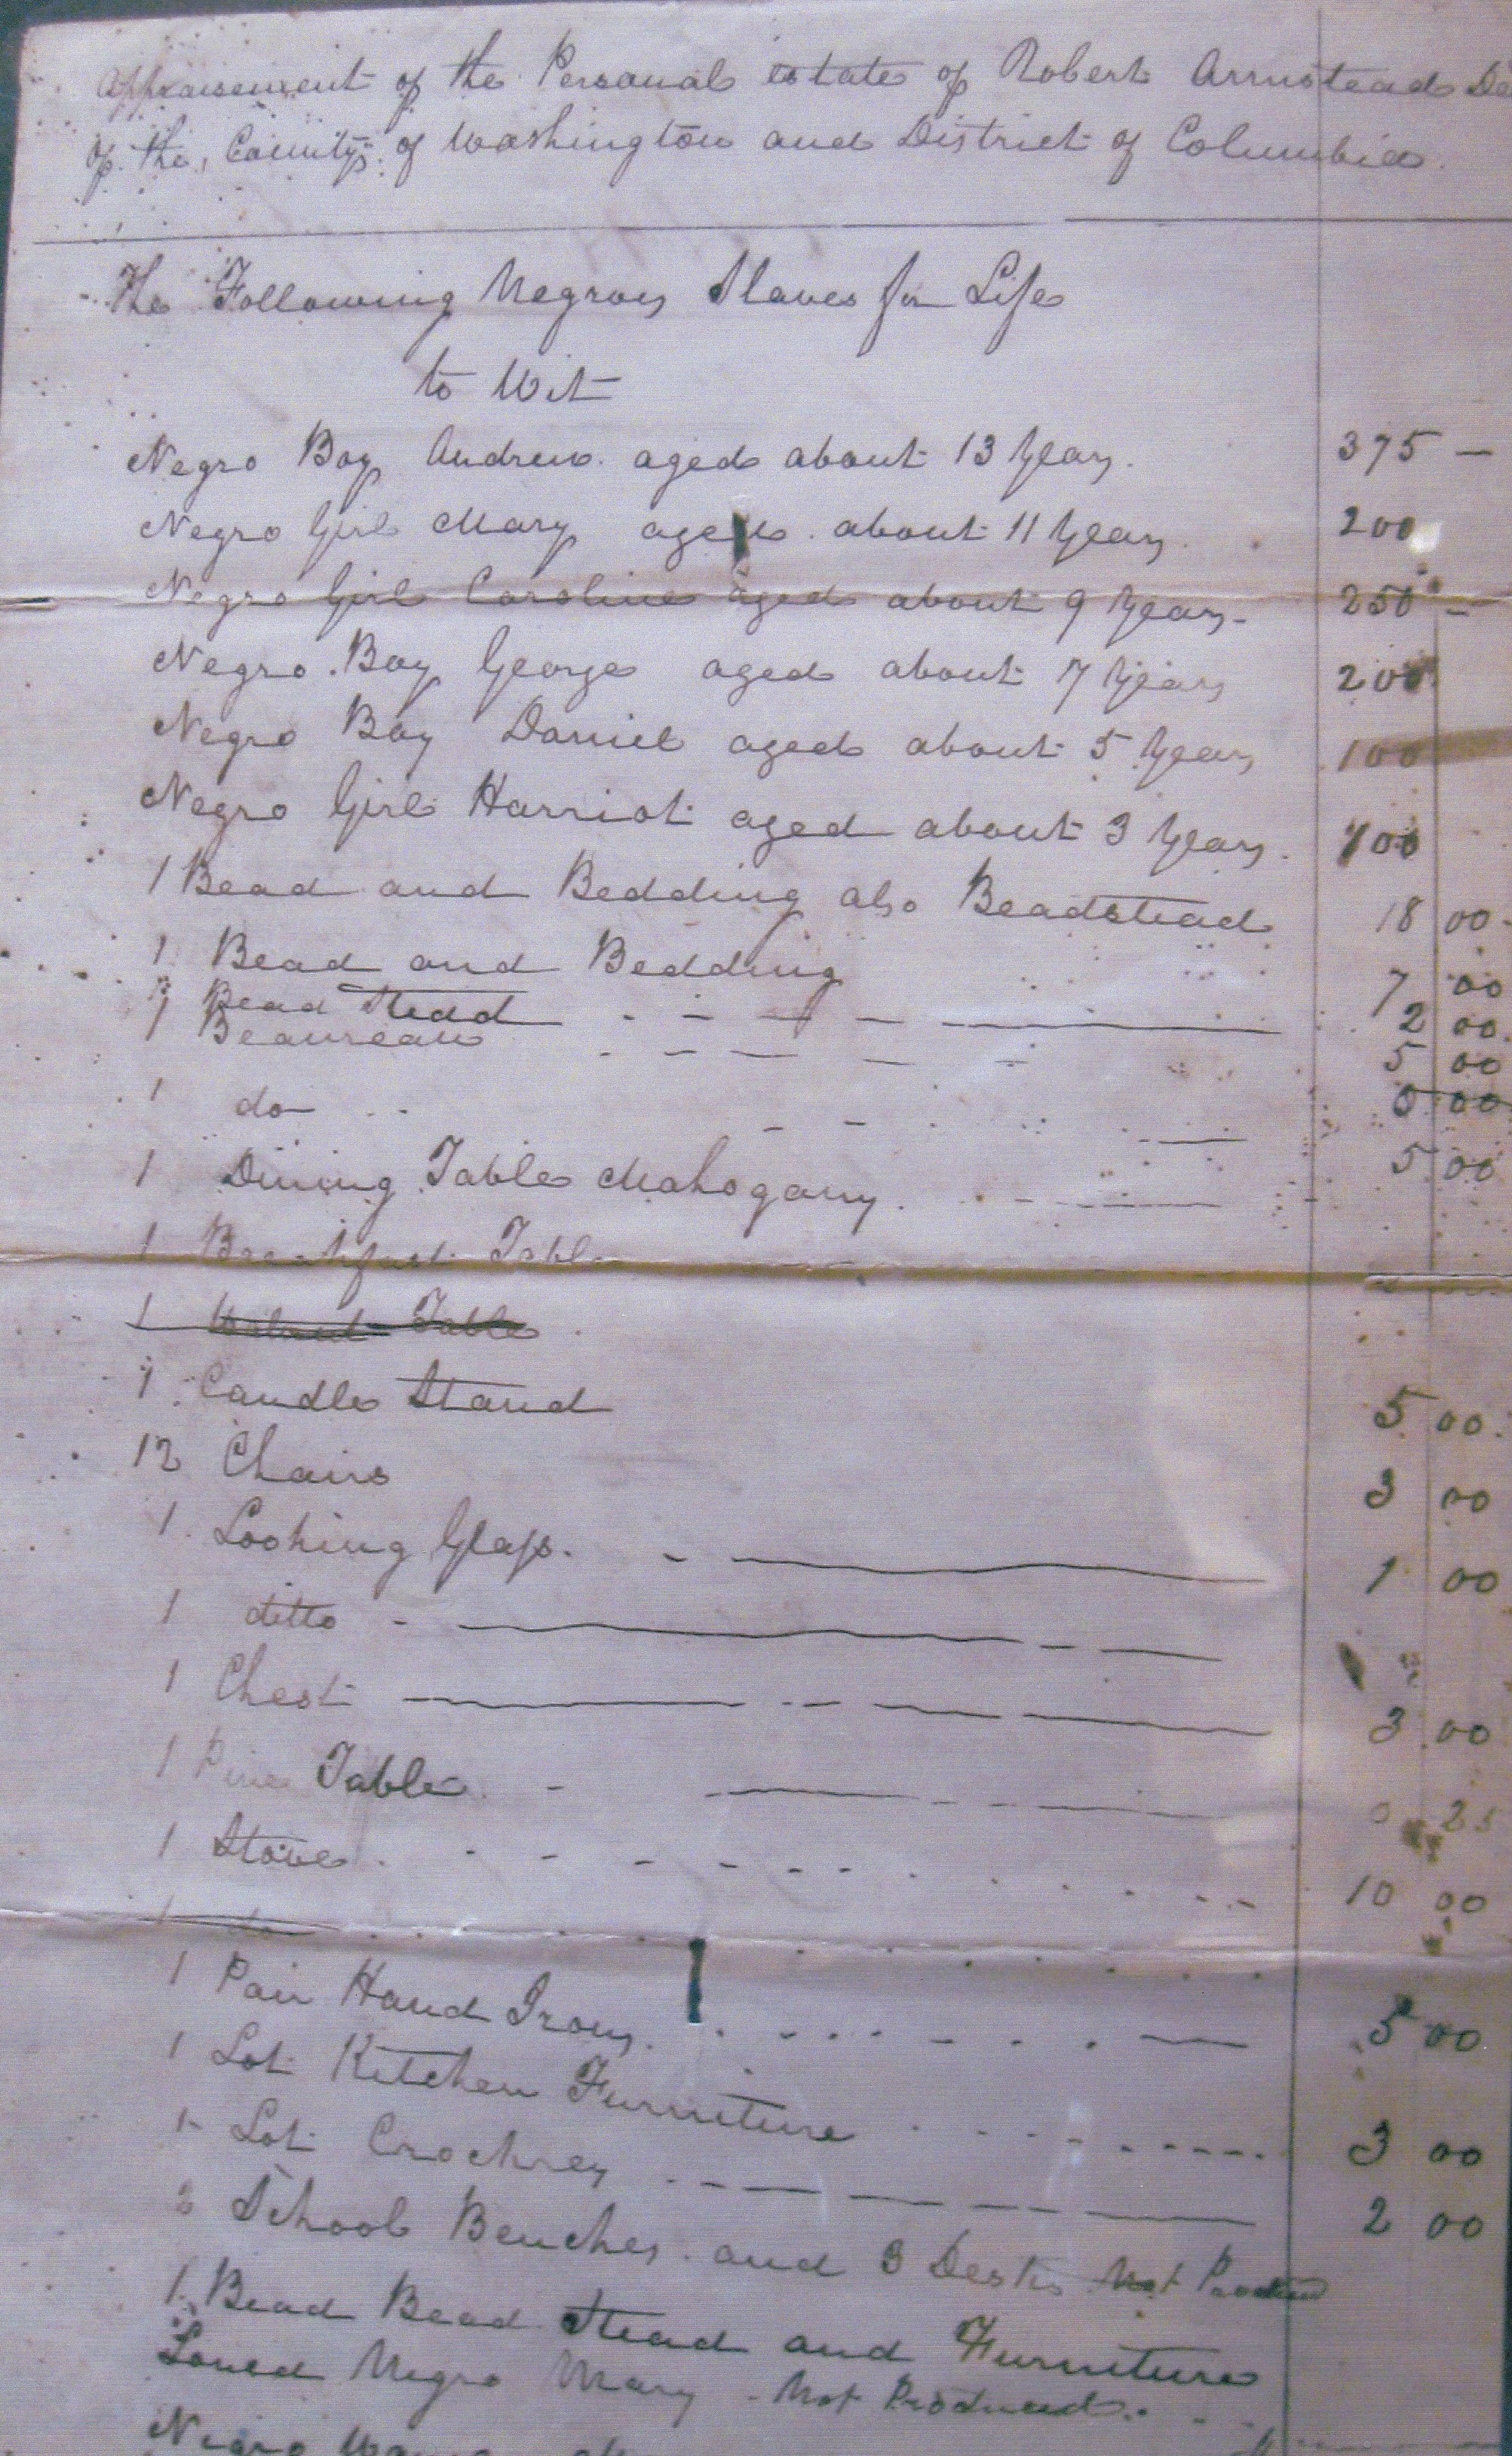 Appraisement of the Personal estate of Robert Armstead De
of the County of Washington and District of Columbia.
The Following Negroes Slaves for Life
to Wit
Negro Boy Andrew aged about 13 years. 375 —
Negro Girl Mary aged about 11 years. 200
Negro Girl Caroline aged about 9 years - 250 -
Negro Boy George aged about 7 years 200
Negro Boy Daniel aged about 5 years 100
Negro Girl Harriot aged about 3 years. 100
1 Bead and Bedding also Beadstead 18 00
1 Bead and Bedding 7 00
1 Bead Stead 2 00
1 Beaureau 5 00
1 do 00
1 Dining Table Mahogany 5 00
1 Breakfast Table
1 Walnut Table
1 Candle Stand 5 00
12 Chairs 3 00
1 Looking Glass 1 00
1 ditto
1 Chest 3 00
1 Pine Table 0 25
1 Stove 10 00
1 do
1 Pair Hand Irons 5 00
1 Lot Kitchen Furniture 3 00
1 Lot Crockrey 2 00
2 School Benches and 3 Desks Not Produced
1 Bead Bead Stead and Furniture
Loned Negro Mary - Not Produced
Negro